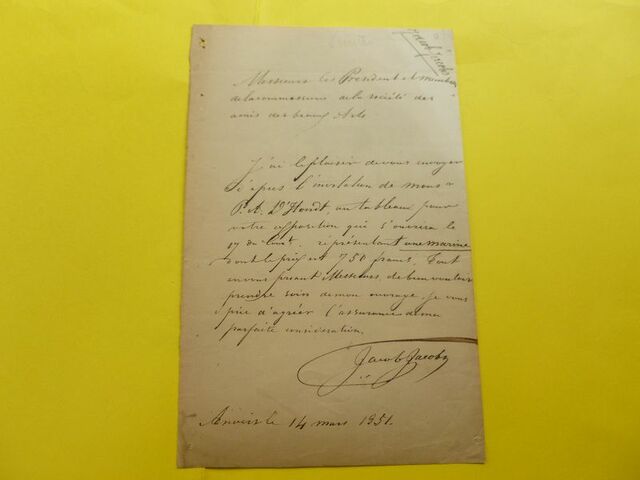 Jacob Jacobs
Messieurs les President et membres
de la commission de la société des
amis des beaux Arts
J'ai le plaisir de vous envoyer
d'après l'invitation de mons r
P. A. D'Hondt, un tableau pour
votre exposition qui s'ouvrira le
17 du Cour t. représentant une marine
dont le prix est 750 francs. Tout
en vous priant Messieurs, de bien vouloir
prendre soin de mon ouvrage je vous
prie d'agréer l'assurance de ma
parfaite considération.
Jacob Jacobs
Anvers le 14 mars 1851.